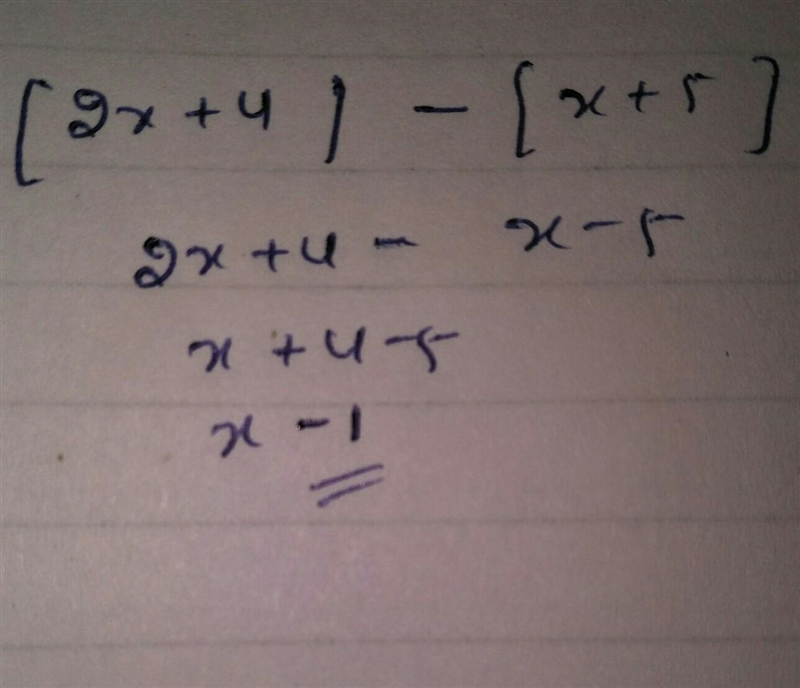 [2x + 4] - [x + 5]
2x + 4 - x - 5
x + 4 - 5
x - 1